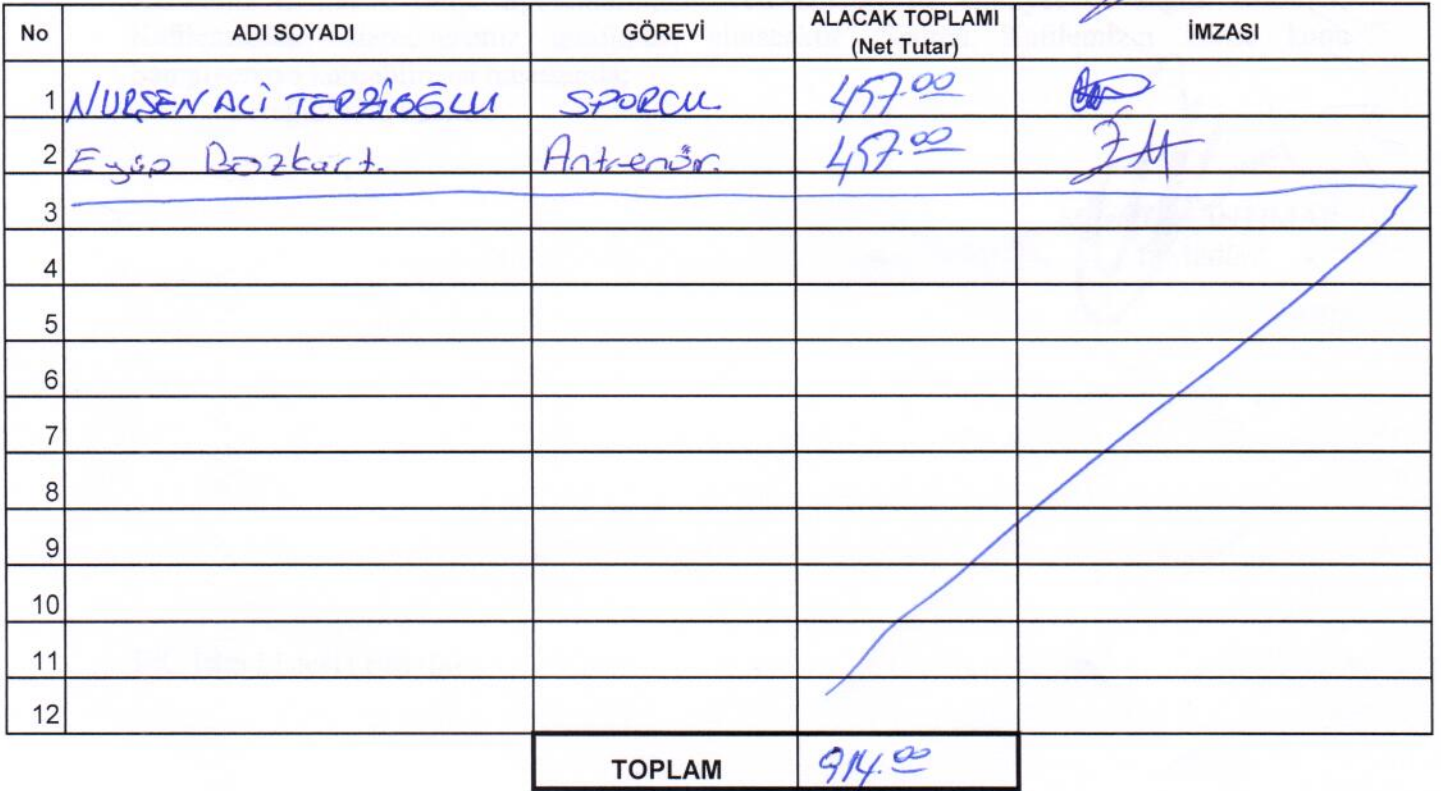 No ADI SOYADI GÖREVİ ALACAK TOPLAMI (Net Tutar) İMZASI
1 NURSEN ALİ TERZİOĞLU SPORCU 457.00
2 Eyüp Bozkurt. Antrenör. 457.00
3
4
5
6
7
8
9
10
11
12
TOPLAM 914.00